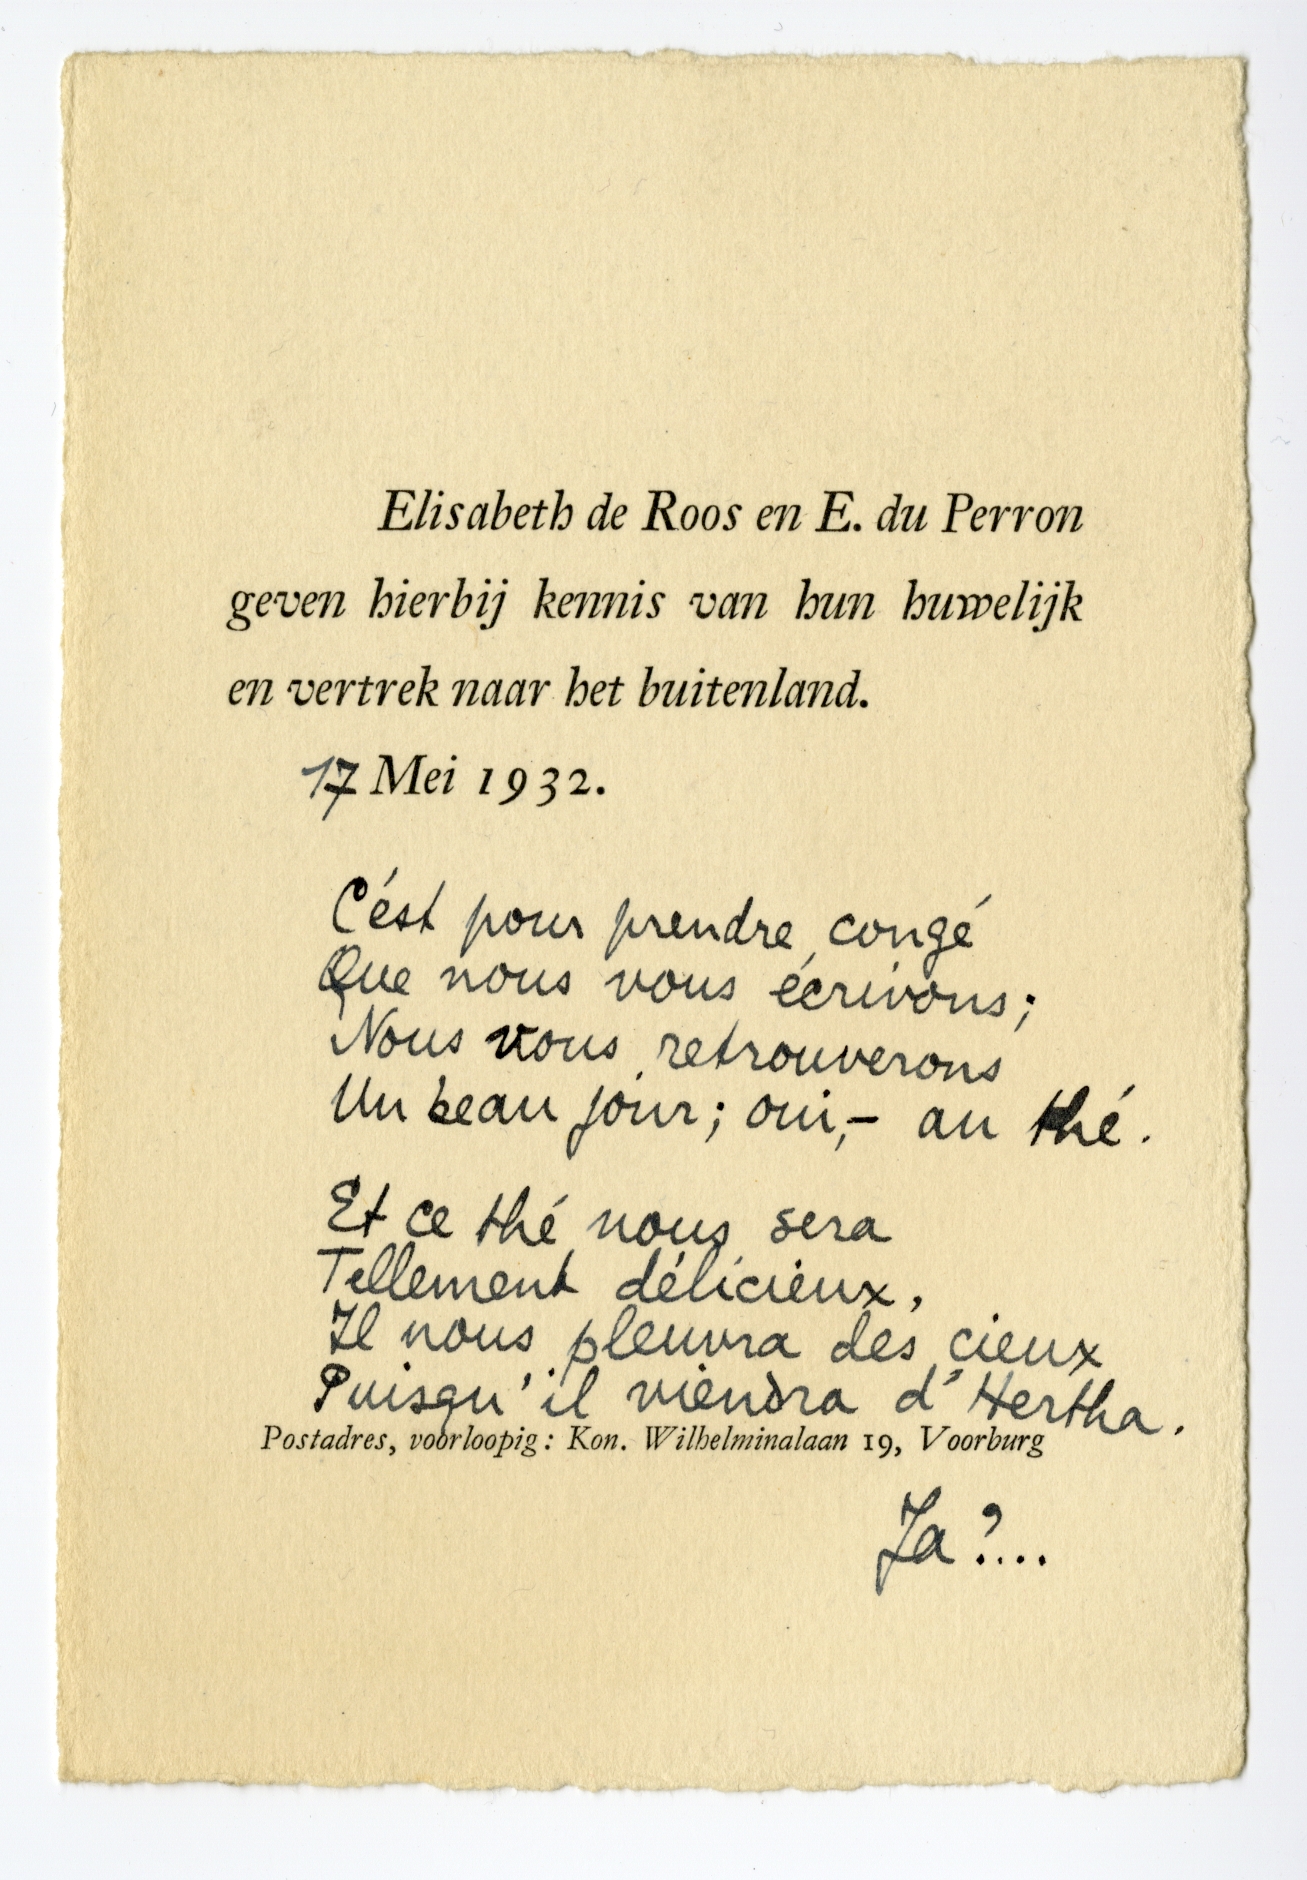 Elisabeth de Roos en E. du Perron
geven hierbij kennis van hun huwelijk
en vertrek naar het buitenland.
17 Mei 1932.
C'est pour prendre congé
Que nous vous écrivons;
Nous vous retrouverons
Un beau jour; oui,– au thé.
Et ce thé nous sera
Tellement délicieux,
Il nous pleuvra des cieux
Puisqu'il viendra d'Hertha.
Postadres, voorloopig: Kon. Wilhelminalaan 19, Voorburg
Ja?...